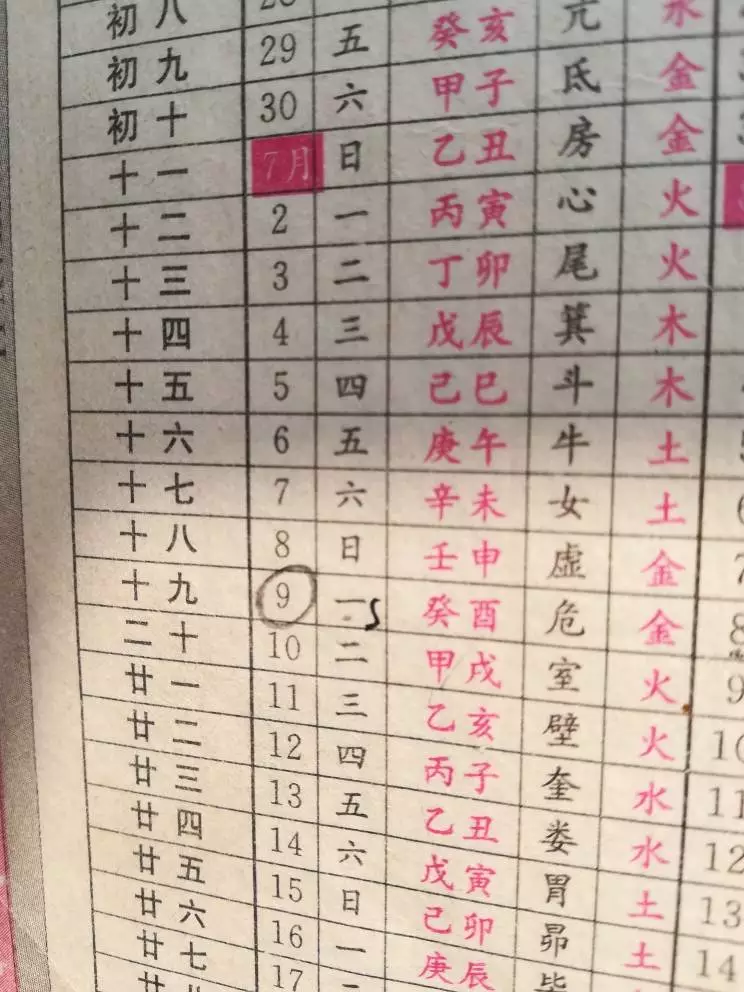 初八
初九 29 五 癸亥 亢 水
初十 30 六 甲子 氐 金
十一 7月 日 乙丑 房 金
十二 2 一 丙寅 心 火
十三 3 二 丁卯 尾 火
十四 4 三 戊辰 箕 木
十五 5 四 己巳 斗 木
十六 6 五 庚午 牛 土
十七 7 六 辛未 女 土 6
十八 8 日 壬申 虚 金 7
十九 9 一 癸酉 危 金 8
二十 10 二 甲戌 室 火 9
廿一 11 三 乙亥 壁 火 10
廿二 12 四 丙子 奎 水 11
廿三 13 五 乙丑 娄 水 12
廿四 14 六 戊寅 胃 土 13
廿五 15 日 己卯 昴 土 14
廿六 16 一 庚辰
廿七 17